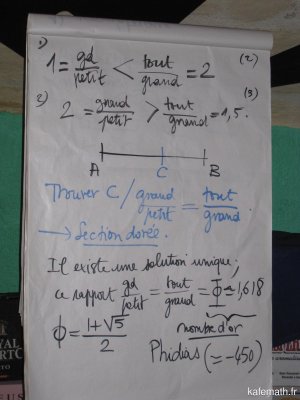 1)
1 = gd/petit < tout/grand = 2 (2)
2)
2 = grand/petit > tout/grand = 1,5. (3)
A C B
Trouver C / grand/petit = tout/grand.
→ Section dorée.
Il existe une solution unique;
ce rapport gd/petit = tout/grand = Φ ≈ 1,618
ϕ = (1+√5)/2 nombre d'or
Phidias (≃ -450)
kafemath.fr